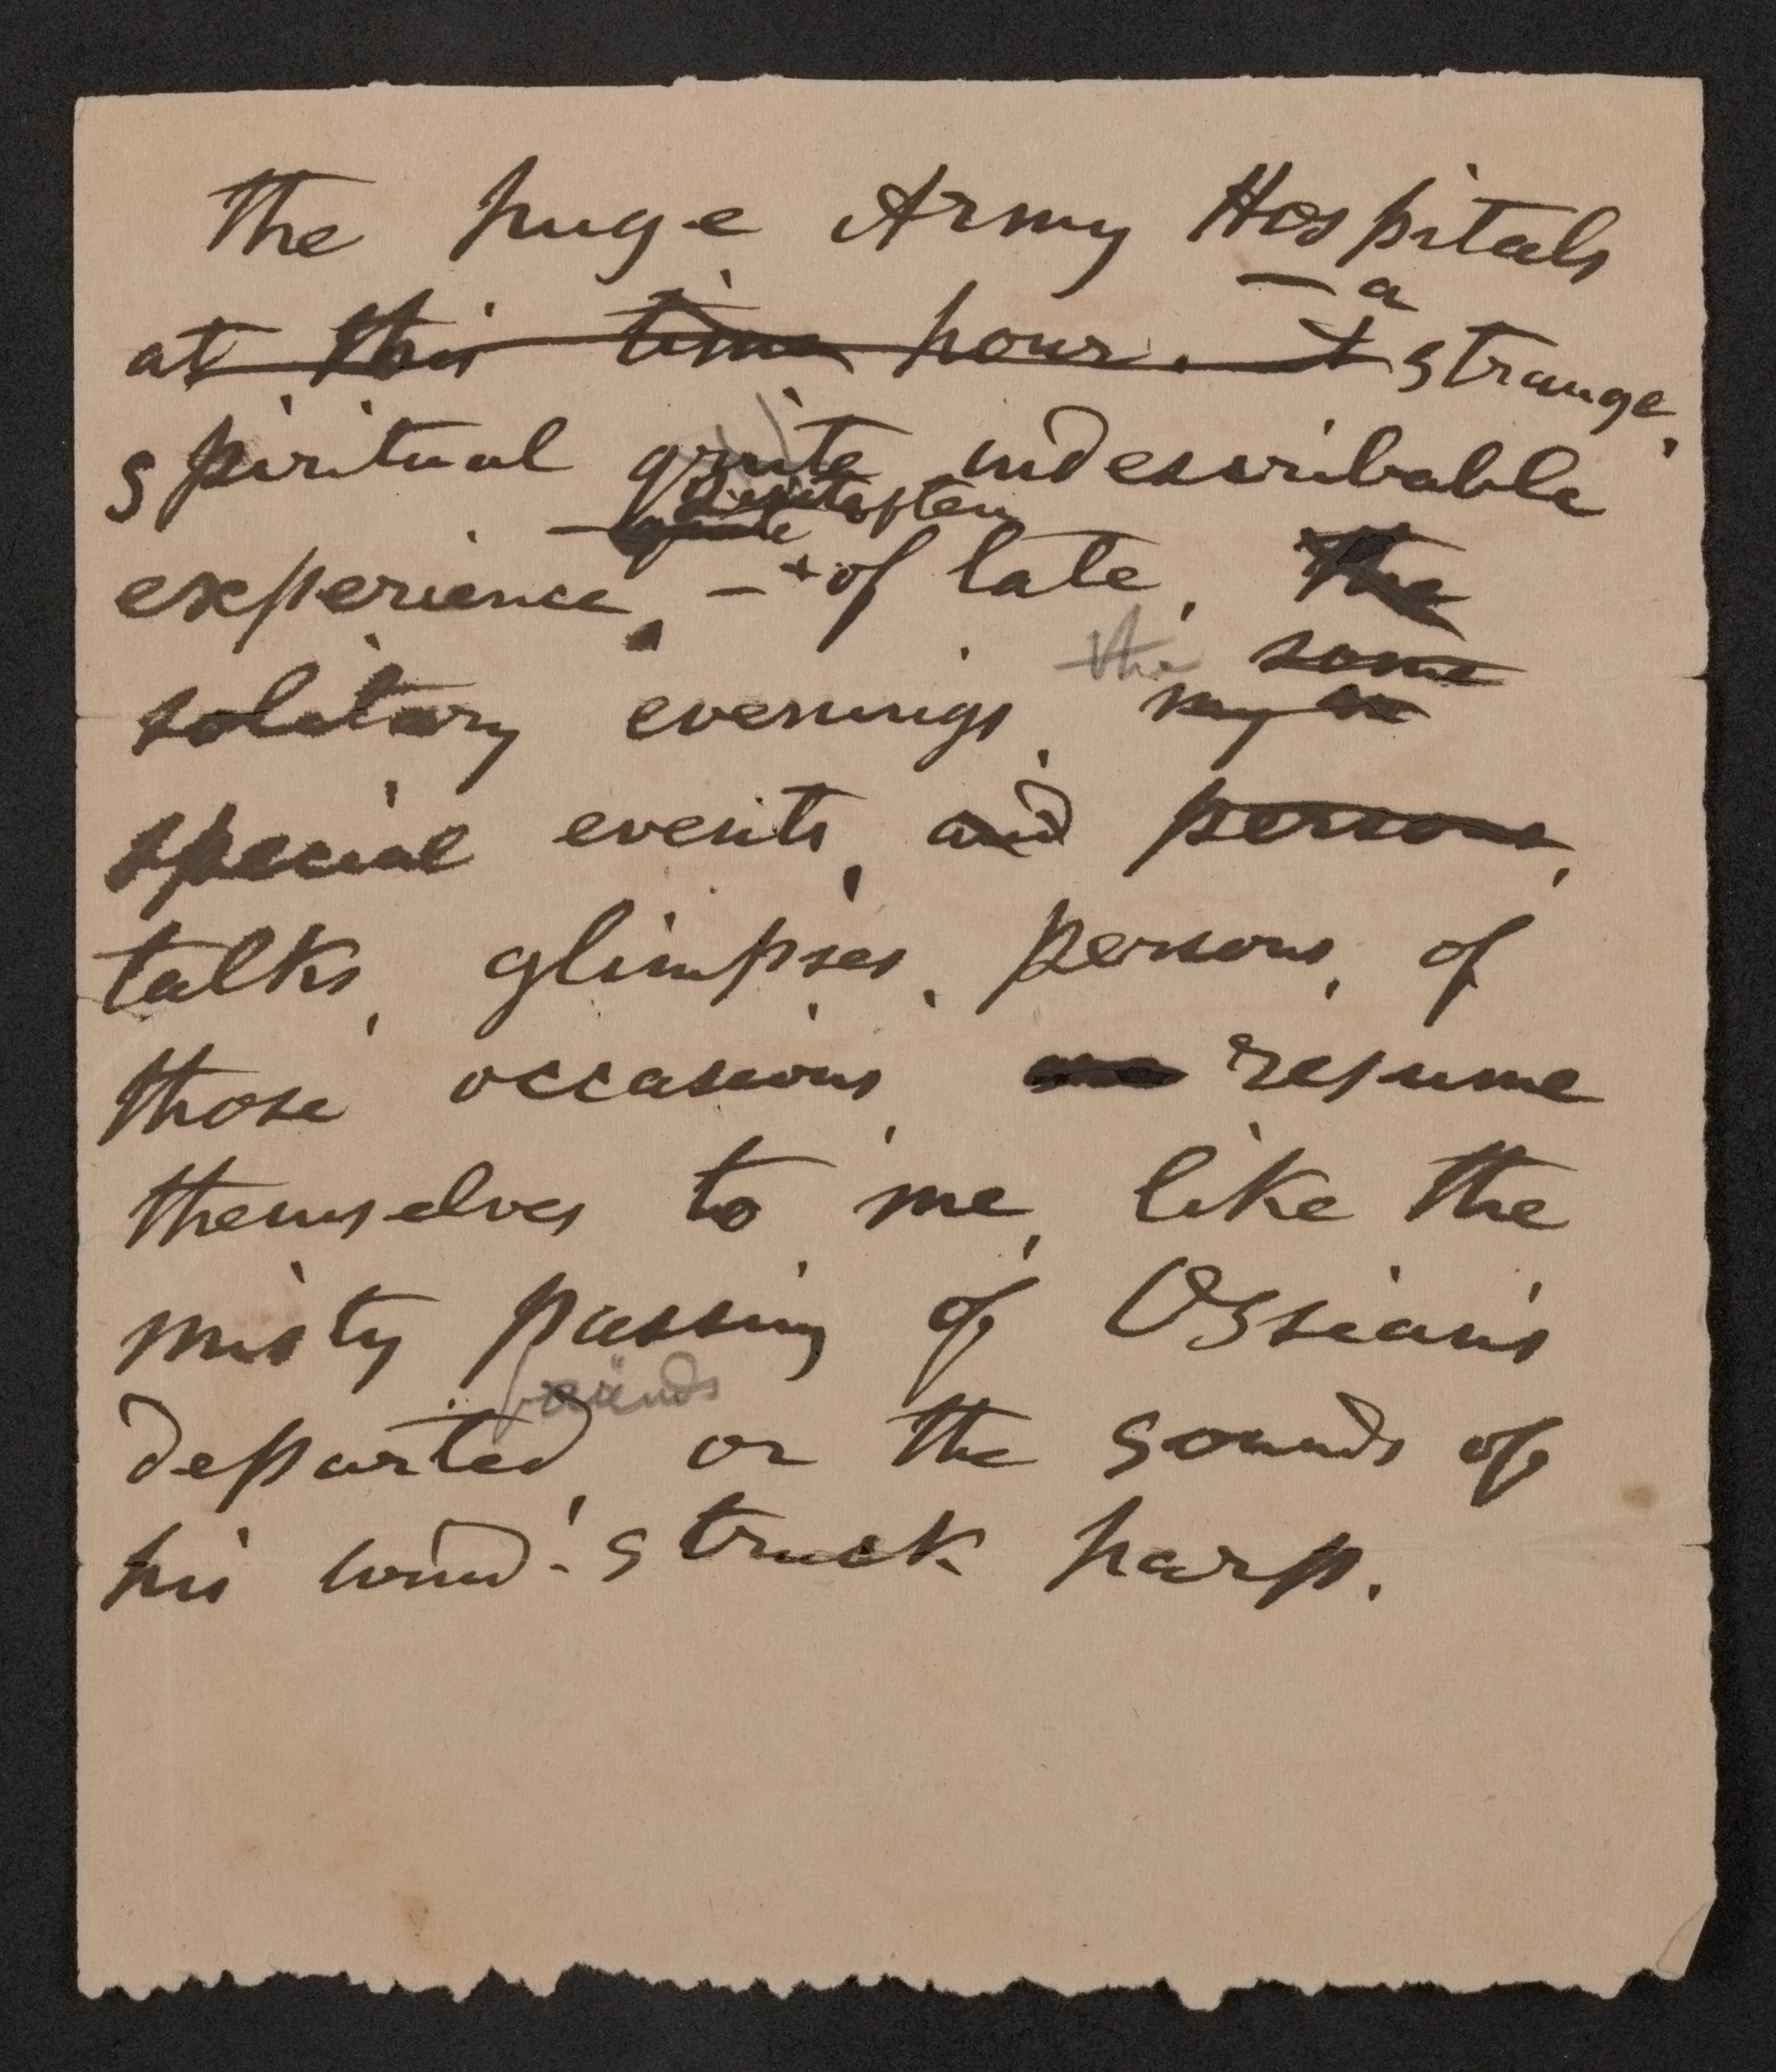 The huge Army Hospitals
— a
at this time hour. A strange,
spiritual quite indescribable
quite often
experience, — + of late, The
the some
solitary evenings, my
special events, and persons,
talks, glimpses, persons, of
those occasions, resume
themselves to me, like the
misty passing of Ossian's
friends
departed, or the sounds of
his wind-struck harp.